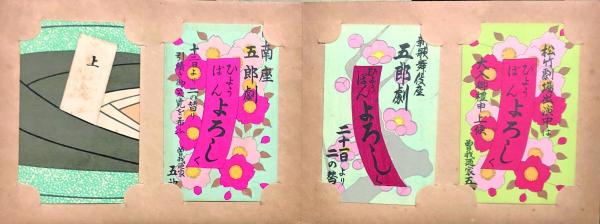 上
南座
五郎劇
十三日より二の替り
ひょう
ばん
よろしく
曽我廼家
五
新歌舞伎座
五郎劇
ひょう
ばん
よろし
二十一日より
二の替
松竹劇場出演中は
大入御禮申上候
ひょう
ばん
よろしく
曽我廼家五